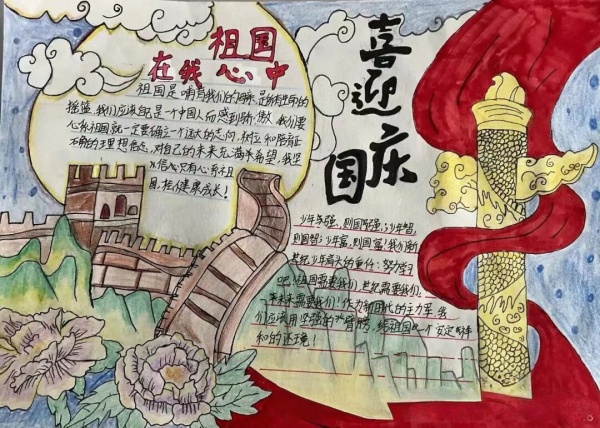 祖国
在我心中
祖国是哺育我们的母亲,是所有生命的
摇篮,我们应该自己是一个中国人而感到骄傲,我们要
心系祖国就一定要确立一个远大的志向,树立和培育正
正确的理想信念,对自己的未来充满羊希望,我坚
信心又有心,有不且
苗壮健康成长!
喜迎
国庆
少年强,则国家强;少年智,
则国智;少年富,则国富!我们新
世纪少年肩负的重任:努力学习
吧,祖国需要我们,世纪需要我们,
未来需要我们!作为新国代的主力军,我
们应该用坚强的臂膀,给祖国一个安定
和的环境!